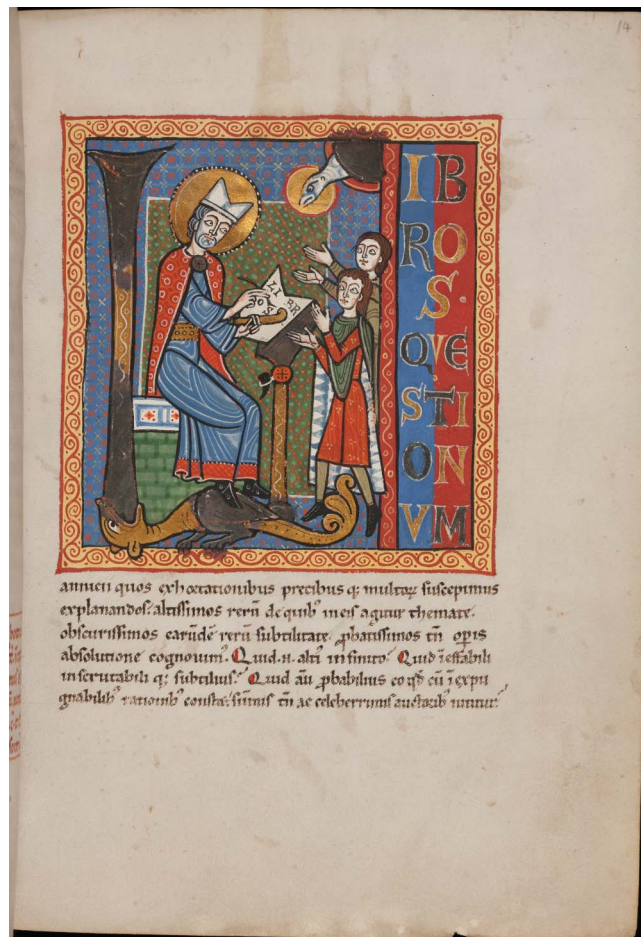 14
LIBROS
L
IB
RO
S.
QVE
STI
ON
VM
annitii quos exhortationibus precibus q; multorꝝ suscepimus
explanandos: altissimos rerū de quibꝰ in eis agitur themate.
obscurissimos earūdē rerū subtilitate. ꝓbatissimos tn̄ opis
absolutione cognouimꝰ. Quid .n. altiꝰ infinito? Quid īeffabili
inscrutabili q; subtilius? Quid aū ꝓbabilius eo qd̄ cū īexpu
gnabilibꝰ rationibꝰ constat: sūmis tn̄ ac celeberrimis auctoribꝰ